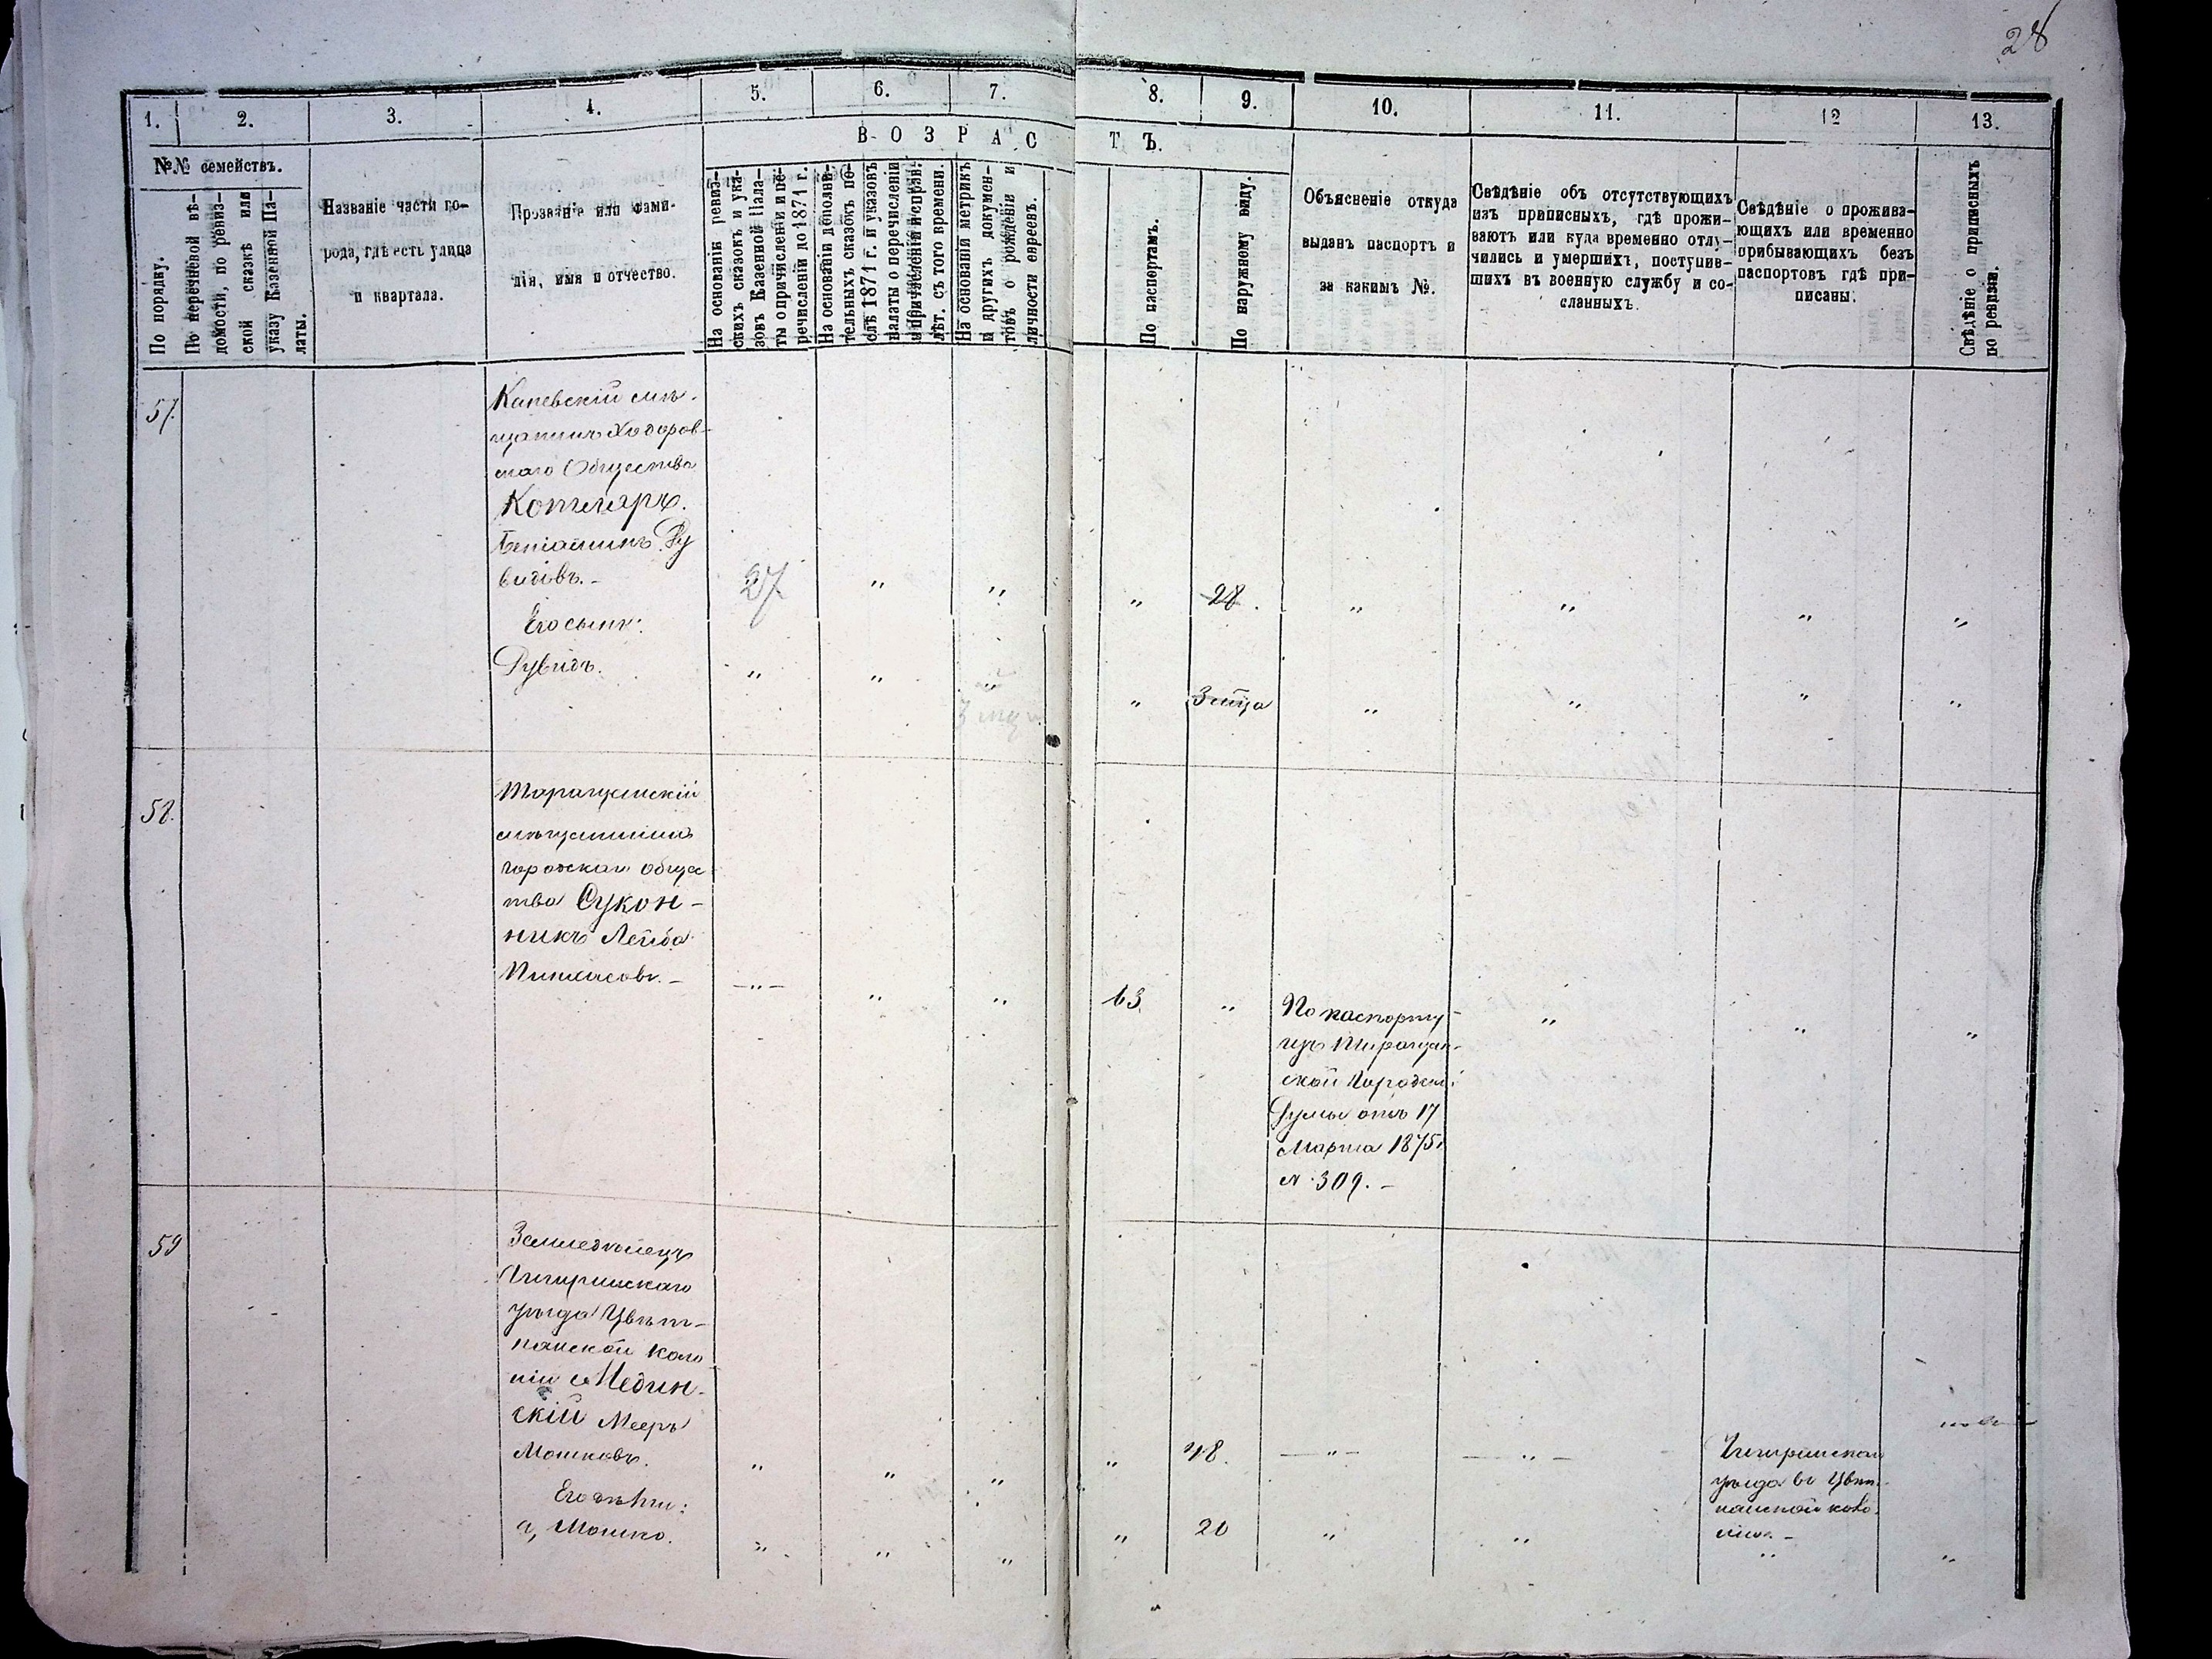 28
1. 2. 3. 4. 5. 6. 7. 8. 9. 10. 11. 12 13.
№№ семействъ.
По порядку.
По перечневой вѣ-
домости, по ревиз-
ской сказкѣ или
указу Казенной Па-
латы.
Названіе части го-
рода, гдѣ есть улица
и квартала.
Прозваніе или фами-
лія, имя и отчество.
ВОЗРАСТЪ.
На основаніи ревиз-
скихъ сказокъ и ука-
зовъ Казенной Пала-
ты о причисленіи и пе-
речисленіи до 1871 г.
На основаніи дополни-
тельныхъ сказокъ по-
слѣ 1871 г. и указовъ
палаты о перечисленіи
и причисленіи и справ.
лѣт. съ того времени.
На основаніи метрикъ
и другихъ докумен-
товъ о рожденіи и
личности евреевъ.
По паспортамъ.
По наружному виду.
Объясненіе откуда
выданъ паспортъ и
за какимъ №.
Свѣдѣніе объ отсутствующихъ
изъ приписныхъ, гдѣ прожи-
ваютъ или куда временно отлу-
чились и умершихъ, поступив-
шихъ въ военную службу и со-
сланныхъ.
Свѣдѣніе о прожива-
ющихъ или временно
прибывающихъ безъ
паспортовъ гдѣ при-
писаны.
Свѣдѣніе о приписныхъ
по ревизіи.
57.
Каневскій мѣ-
щанинъ Ходоров-
скаго Общества
Котляръ.
Беніаминъ Ру
видовъ.-
27 " " " 28. " " " "
Его сынъ:
Рувидъ.
" " " " 3 мца " " " "
3 мц
58.
Таращанскій
мѣщанинъ
городскаго общес
тва Сукон-
никъ Лейба
Пинхасовъ.-
-"- " " 63. " " " "
По паспорту
изъ Таращан-
ской Городской
Думы отъ 17
Марта 1875
№ 309.-
59
Земледѣлецъ
Чигиринскаго
уѣзда Цвѣт-
нанской коло
ніи Медин-
скій Мееръ
Мошковъ.
" " " " 48. -"- -"-
Чигиринскаго
уѣзда въ Цвѣт-
нанской коло-
ніи.-
Его дѣти:
а, Мошко.
" " " " 20 " " " "